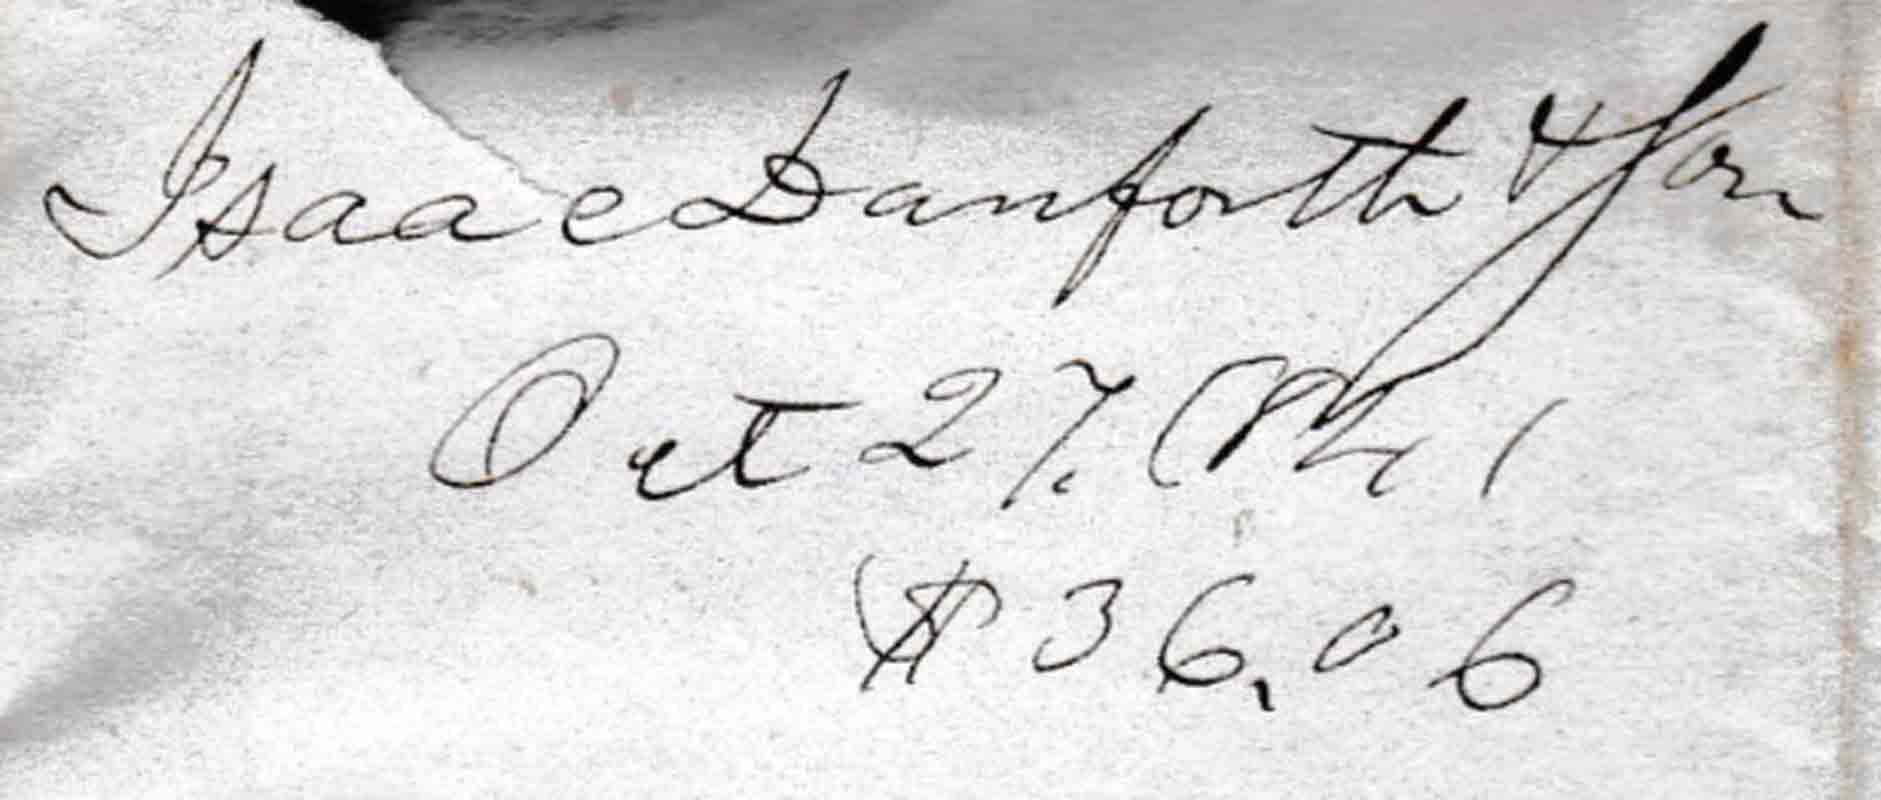 Isaac Danforth & Son
Oct 27. 1841
$36.06